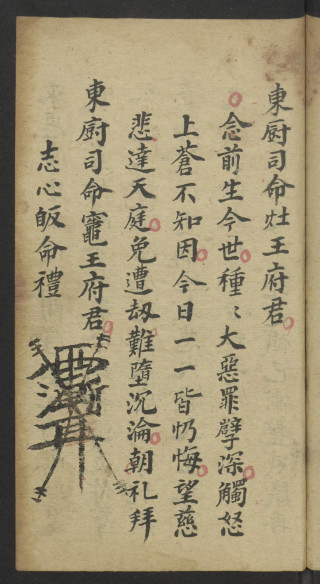 東廚司命灶王府君
念前生今世種〻大惡罪孽深觸怒
上蒼不知因今日一一皆忏悔望慈
悲達天庭免遭刼難墮沉淪朝礼拜
東廚司命竈王府君
志心皈命禮